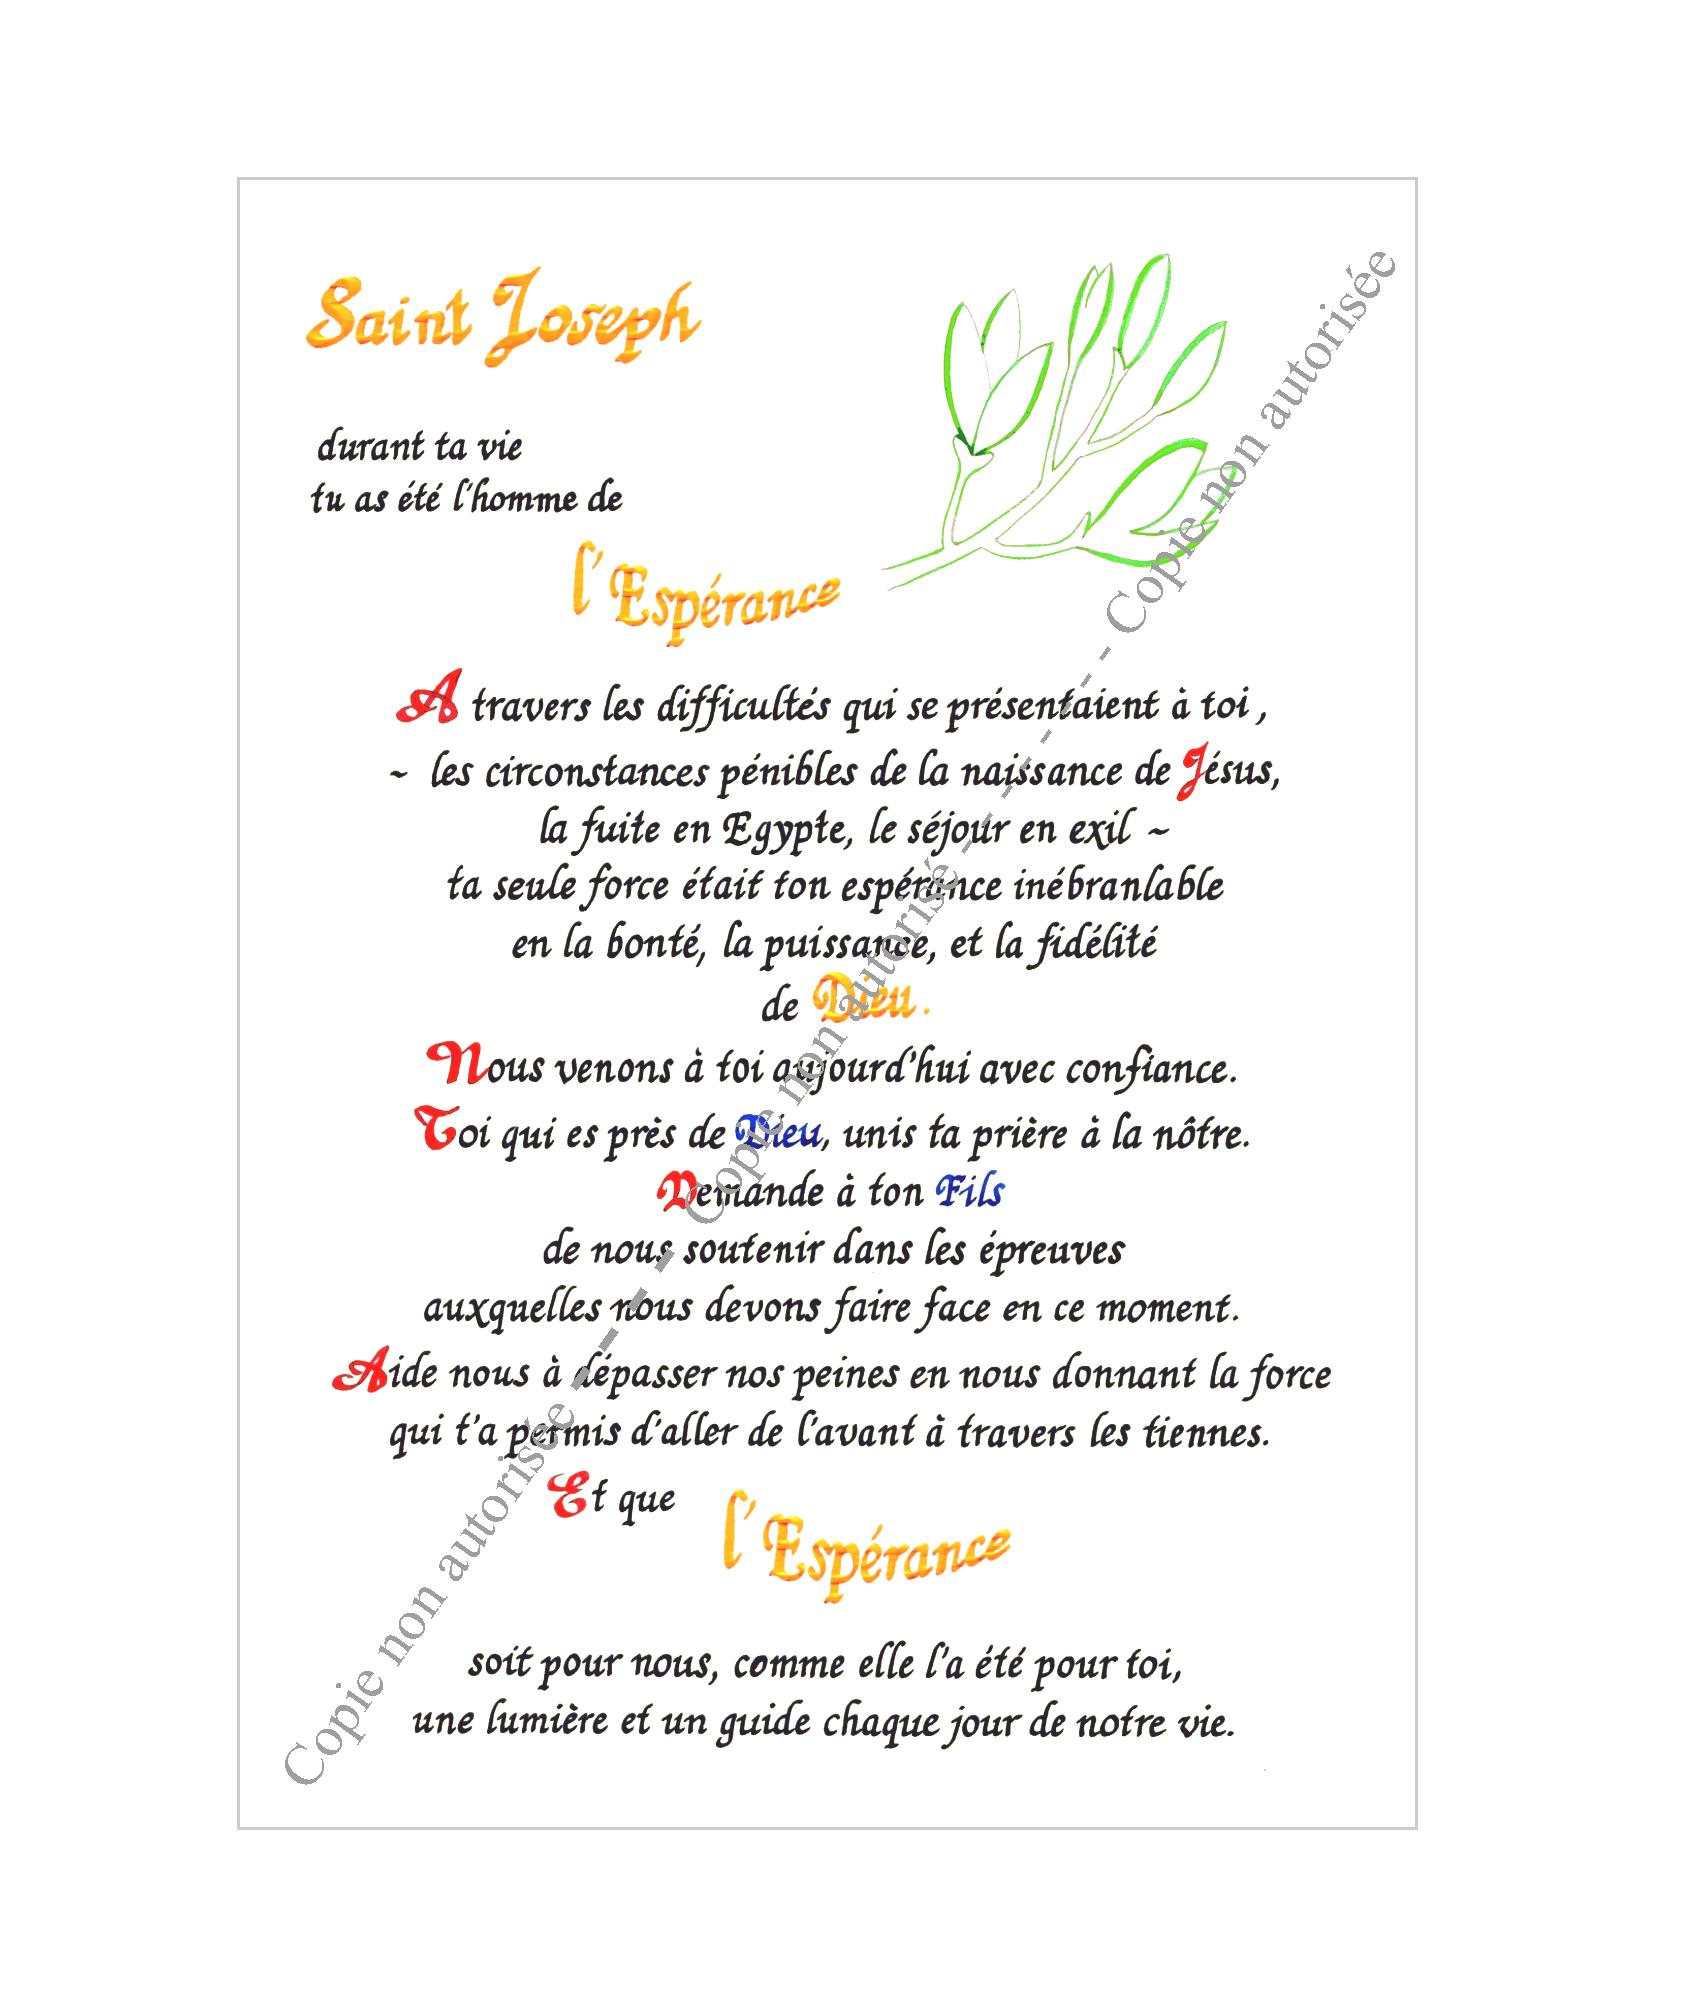 Saint Joseph
durant ta vie
tu as été l'homme de
l'Espérance
A travers les difficultés qui se présentaient à toi,
~ les circonstances pénibles de la naissance de Jésus,
la fuite en Egypte, le séjour en exil ~
ta seule force était ton espérance inébranlable
en la bonté, la puissance, et la fidélité
de Dieu.
Nous venons à toi aujourd'hui avec confiance.
Toi qui es près de Dieu, unis ta prière à la nôtre.
Demande à ton Fils
de nous soutenir dans les épreuves
auxquelles nous devons faire face en ce moment.
Aide nous à dépasser nos peines en nous donnant la force
qui t'a permis d'aller de l'avant à travers les tiennes.
Et que
l'Espérance
soit pour nous, comme elle l'a été pour toi,
une lumière et un guide chaque jour de notre vie.
Copie non autorisée - - - - Copie non autorisé - - - - - - - Copie non autorisée